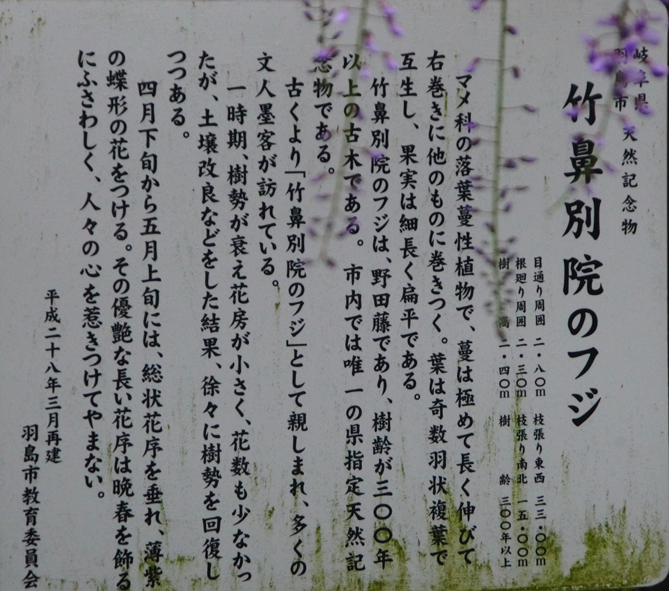 岐阜県
羽島市 天然記念物
竹鼻別院のフジ
目通り周囲 二・八〇m 枝張り東西 三三・〇〇m
根廻り周囲 二・三〇m 枝張り南北 一五・〇〇m
樹 高 二・四〇m 樹 齢 三〇〇年以上
マメ科の落葉蔓性植物で、蔓は極めて長く伸びて
右巻きに他のものに巻きつく。葉は奇数羽状複葉で
互生し、果実は細長く扁平である。
竹鼻別院のフジは、野田藤であり、樹齢が三〇〇年
以上の古木である。市内では唯一の県指定天然記
念物である。
古くより「竹鼻別院のフジ」として親しまれ、多くの
文人墨客が訪れている。
一時期、樹勢が衰え花房が小さく、花数も少なかっ
たが、土壌改良などをした結果、徐々に樹勢を回復し
つつある。
四月下旬から五月上旬には、総状花序を垂れ、薄紫
の蝶形の花をつける。その優艶な長い花序は晩春を飾る
にふさわしく、人々の心を惹きつけてやまない。
平成二十八年三月再建
羽島市教育委員会